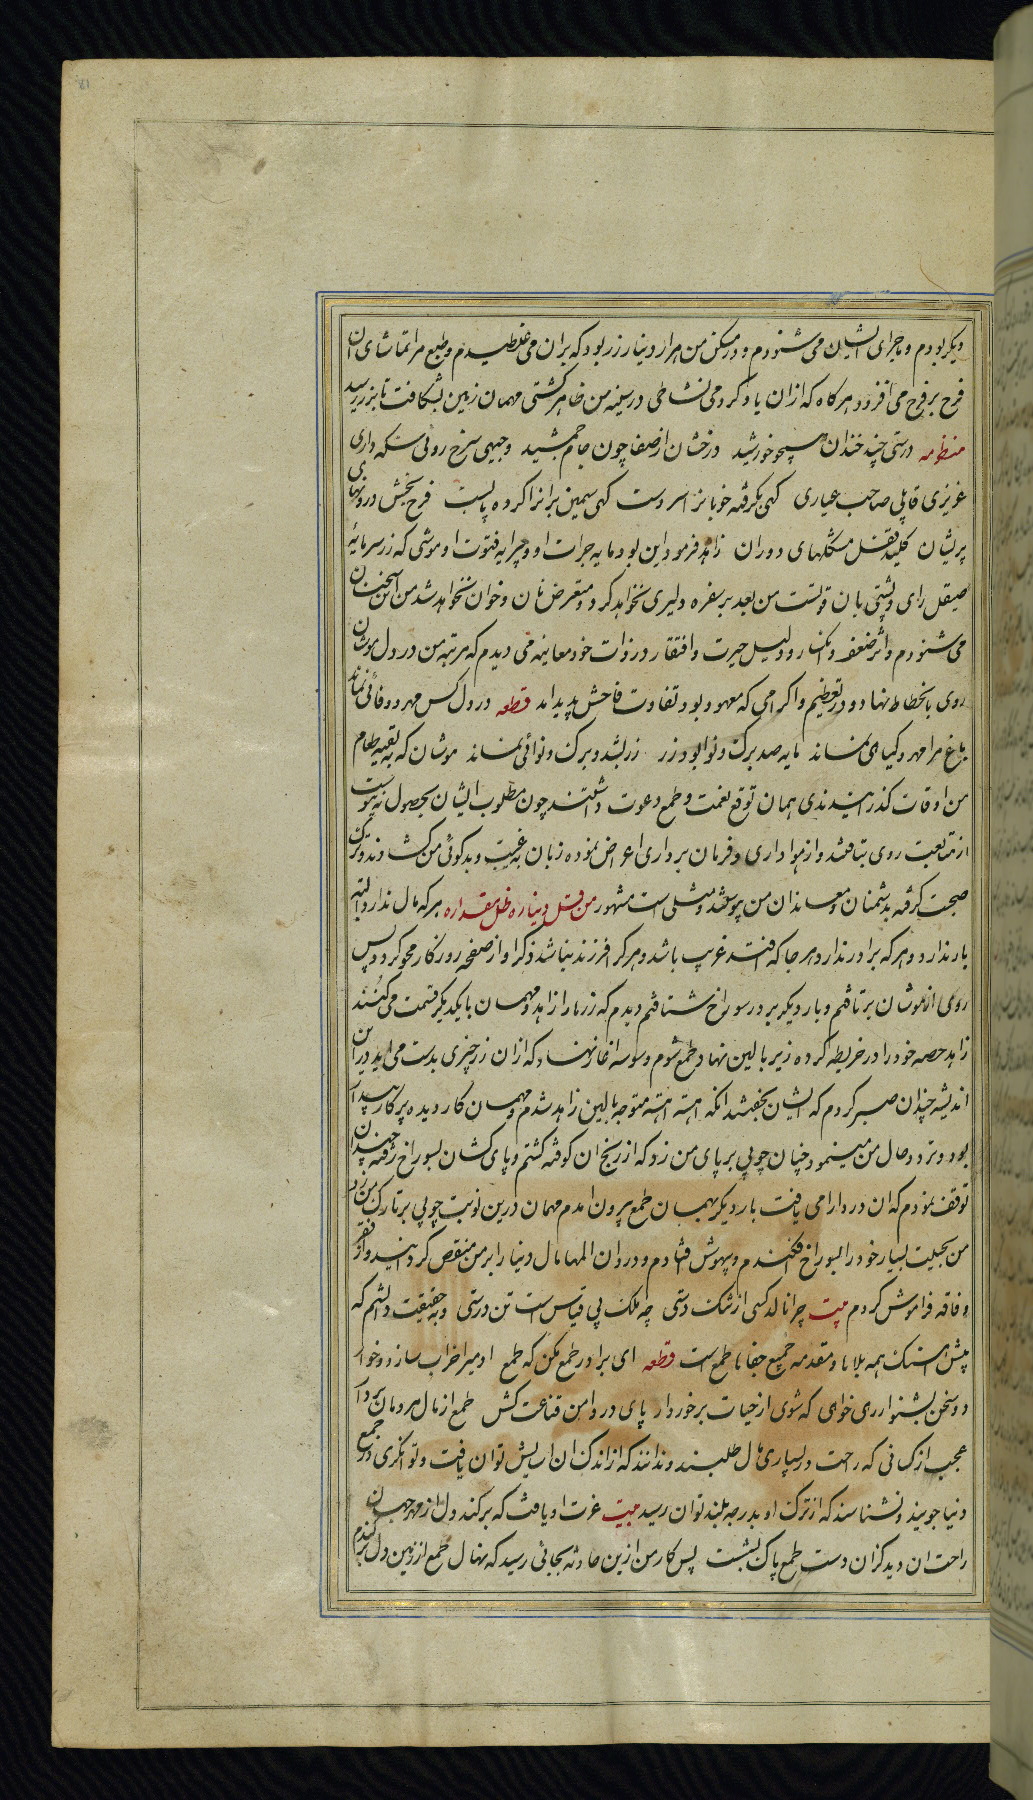 دیکر بودم و ماجرای ایشان می شنودم و در مسکن من هزار دینار زر بود که بران می غلطیدم و طبع مرا تماشای ان
فرح بر فرح می افزود هرکاه که ازان یاد کردمی نشاطی در سینه من ظاهر کشتی مهمان زمین بشکافت تا بزر رسید
منظومه درستی چند خندان همچو خورشید درخشان از صفا چون جام جمشید وجیهی سرخ روئی سکه داری
عزیزی قابلی صاحب عیاری کهی بکرفته خوبانرا سر دست کهی سیمین برانرا کرده پابست فرح بخش درونهای
پریشان کلید قفل مشکلهای دوران زاهد فرمود این بود مایه جرات او و پیرایه فتوت او موشی که زر سرمایه
صیقل رای و پشتی بان قوتست من بعد بر سفره دلیری نخواهد کرد و متعرض نان و خوان نخواهد شد من این سخنان
می شنودم و اثر ضعف و انکسار و دلیل حیرت و افتقار در ذات خود معاینه می دیدم که مرتبه من در دل موشان
روی بانحطاط نهاد و در تعظیم و اکرامی که معهود بود تفاوت فاحش پدید امد قطعه در دل کس مهر و وفائی نماند
باغ مرا مهر و کیای نماند مایه صد برک و نوا بود زر زر بشد و برک و نوائی نماند موشان که بقیه طعام
من اوقات کذرانیدندی همان توقع نعمت و طمع دعوت داشتند چون مطلوب ایشان بحصول نه پیوست
از متابعت روی بتافتند و از هواداری و فرمان برداری اعراض نموده زبان به غیبت و بدکوئی من کشادند و ترک
صحبت کرفته بدشمنان و معاندان من پیوستند و مثلی است مشهور من قل دیناره ظل مقداره هر که مال ندارد البته
یار ندارد و هر که برادر ندارد هر جا که افتد غریب باشد و هر کرا فرزند نباشد ذکر او از صفحه روزکار محو کردد پس
روی از موشان برتافتم و بار دیکر بر در سوراخ شتافتم دیدم که زر ما را زاهد و مهمان با یکدیکر قسمت می کنند
زاهد حصه خود را در خریطه کرده زیر بالین نهاد طمع شوم وسوسه اغاز نهاد که ازان زر چیزی بدست می اید درین
اندیشه چندان صبر کردم که ایشان بخفتند انکه اهسته اهسته متوجه بالین زاهد شدم و مهمان کاردیده پرکار بیدار
بود و ترد و حال من میننمود چنان چوبی بر پای من زد که از رنج ان کوفته کشتم و پای کشان بسوراخ رفته چندان
توقف نمودم که ان درد ارامی یافت بار دیکر بهمان طمع بیرون امدم مهمان درین نوبت چوبی بر تارک من زد
من بحیلت بسیار خود را بسوراخ فکندم و بیهوش فتادم و درد ان المها مال دینار ابر من منقص کردانید و از فقر
و فاقه فراموش کردم بیت چرا نالد کسی از تنک دستی چه ملک بی قیاس است تن درستی و بحقیقت دانستم که
پیش اهنک همه بلاها و مقدمه جمیع جفاها طمع است قطعه ای برادر طمع مکن که طمع ادمی را خراب سازد و خوار
دو سخن بشنو ار ری خواهی که شوی از حیات برخوردار پای در دامن قناعت کش طمع از مال مردمان بردار
عجب از کسانی که راحت در بسیاری مال طلبند و ندانند که از اندک ان اسایش توان یافت و توانکری در جمع
دنیا جویند و نشناسند که از ترک او بدرجه بلند توان رسید بیت عزت او یافت که برکند دل از مهر جهان
راحت ان دید کزان دست طمع پاک بشست پس کار من ازین حادثه بجائی رسید که نهال طمع از زمین دل برکندم